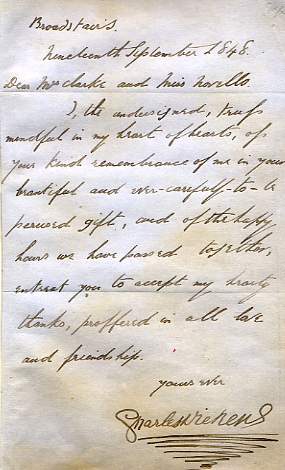 Broadstairs.
Nineteenth September 1848.
Dear Mrs Clarke and Miss Novello.
I, the undersigned, truly
mindful in my heart of hearts, of
your kind remembrance of me in your
beautiful and ever-carefully-to-be
perused gift, and of the happy
hours we have passed together,
entreat you to accept my hearty
thanks, proffered in all love
and friendship.
yours ever
Charles Dickens